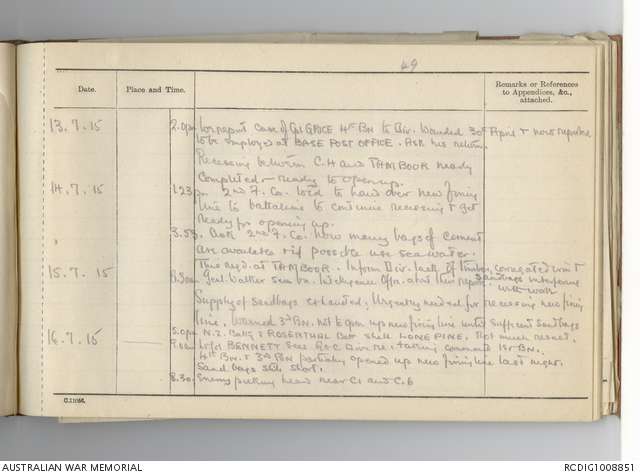 49
Date. Place and Time. Remarks or References to Appendices, &c., attached.
13.7.15 2.0pm We report case of Cpl GRACE 4th BN to Div. Wounded 30th April & now reported
to be employed at BASE POST OFFICE. Ask his return.
Recessing between C.H and TAMBOUR nearly
completed - ready to open up.
14.7.15 1.23 pm 2nd F. Co. told to hand over new firing
line to battalions to continue recessing & get
ready for opening up.
3.53 Ask 2nd F. Co. how many bags of cement
are available & if possible use sea water.
This reqd. at TAMBOOR. Inform Div. lack of timber, corrugated iron &
15.7.15 Genl. Walker sees on Intelligence Offrs. and their reports. Sandbags interferes
with work
Supply of sandbags exhausted. Urgently needed for recessing new firing
line. Warned 3rd BN. not to open up new firing line until sufficient sandbags
5.0pm N.Z. Batty & ROSENTHAL Batt shell LONE PINE. Not much result.
16.7.15 9.0am Lt Col BENNETT sees G.O.C. Div re. taking command 1st BN.
4th BN. & 3rd BN partially opened up new firing line last night.
Sand bags still short.
8.30 Enemy picking heard near C1 and C.6
C.11056.
AUSTRALIAN WAR MEMORIAL RCDIG1008851